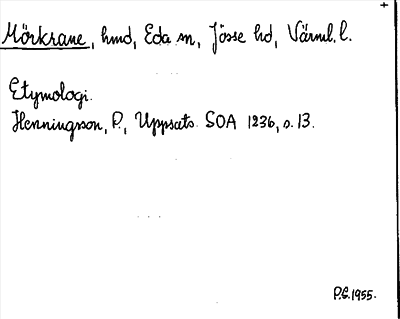 +
Mörkrane, hmd, Eda sn, Jösse hd, Värml. l.
Etymologi.
Henningsson, P., Uppsats SOA 1236, s. 13.
P.G. 1955.